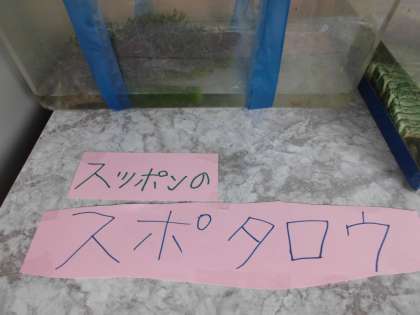 スッポンの
スポタロウ